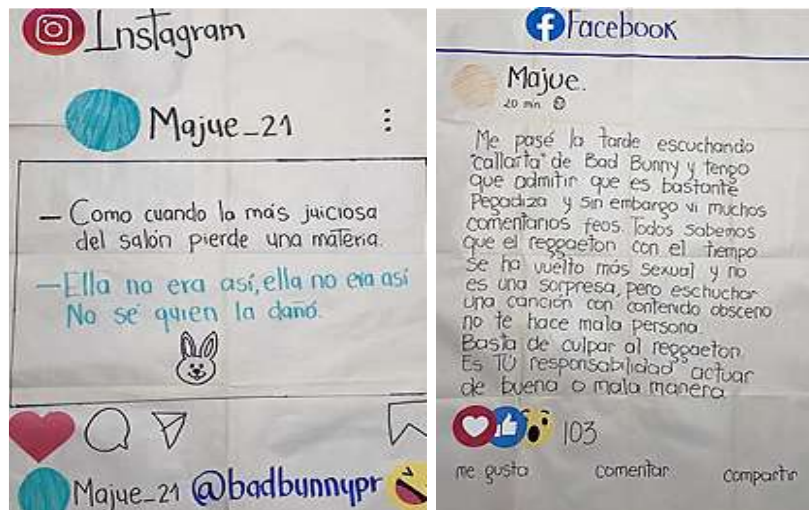 Instagram
Majue_21
— Como cuando la más juiciosa
del salón pierde una materia.
— Ella no era así, ella no era así
No sé quien la dañó.
Majue_21 @badbunnypr
Facebook
Majue.
20 min
Me pasé la tarde escuchando
"callaita" de Bad Bunny y tengo
que admitir que es bastante
Pegadiza y sin embargo vi muchos
comentarios feos. Todos sabemos
que el reggaeton con el tiempo
se ha vuelto más sexual y no
es una sorpresa, pero eschuchar
una canción con contenido obsceno
no te hace mala persona.
Basta de culpar al reggaeton.
Es TÚ responsabilidad actuar
de buena o mala manera
103
me gusta comentar compartir